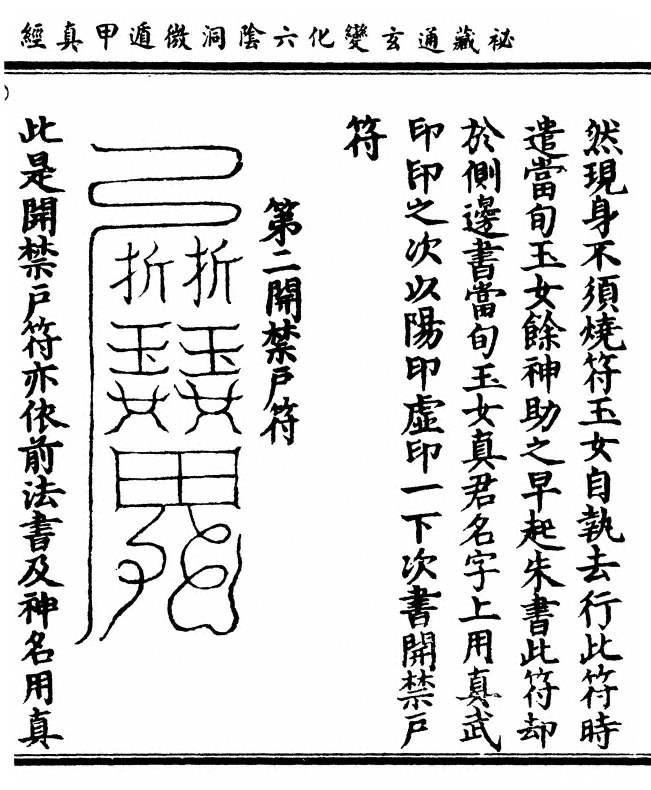 祕藏通玄變化六陰洞微遁甲真經
然現身不須燒符玉女自執去行此符時
遣當旬玉女餘神助之早起朱書此符却
於側邊書當旬玉女真君名字上用真武
印印之次以陽印虛印一下次書開禁戶
符
第二開禁戶符
折玉女
折玉女
此是開禁戶符亦依前法書及神名用真